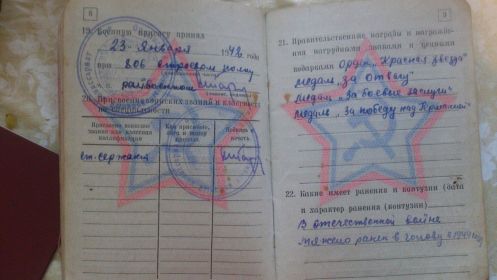 8
19. Военную присягу принял
23 Января 1942 года
при 806 стрелковом полку
20. Присвоение воинских званий и классности
по специальности
Присвоено воинское
звание или классная
квалификация
Кем присвоено,
дата и номер
приказа
Подпись и
печать
ст. сержант
9
21. Правительственные награды и награждения
нагрудными знаками и ценными
подарками Орден „Красная звезда"
медаль „За отвагу"
медаль „За боевые заслуги"
медаль „За победу над Германией"
22. Какие имеет ранения и контузии (дата
и характер ранения (контузии)
В отечественной войне
тяжело ранен в голову в